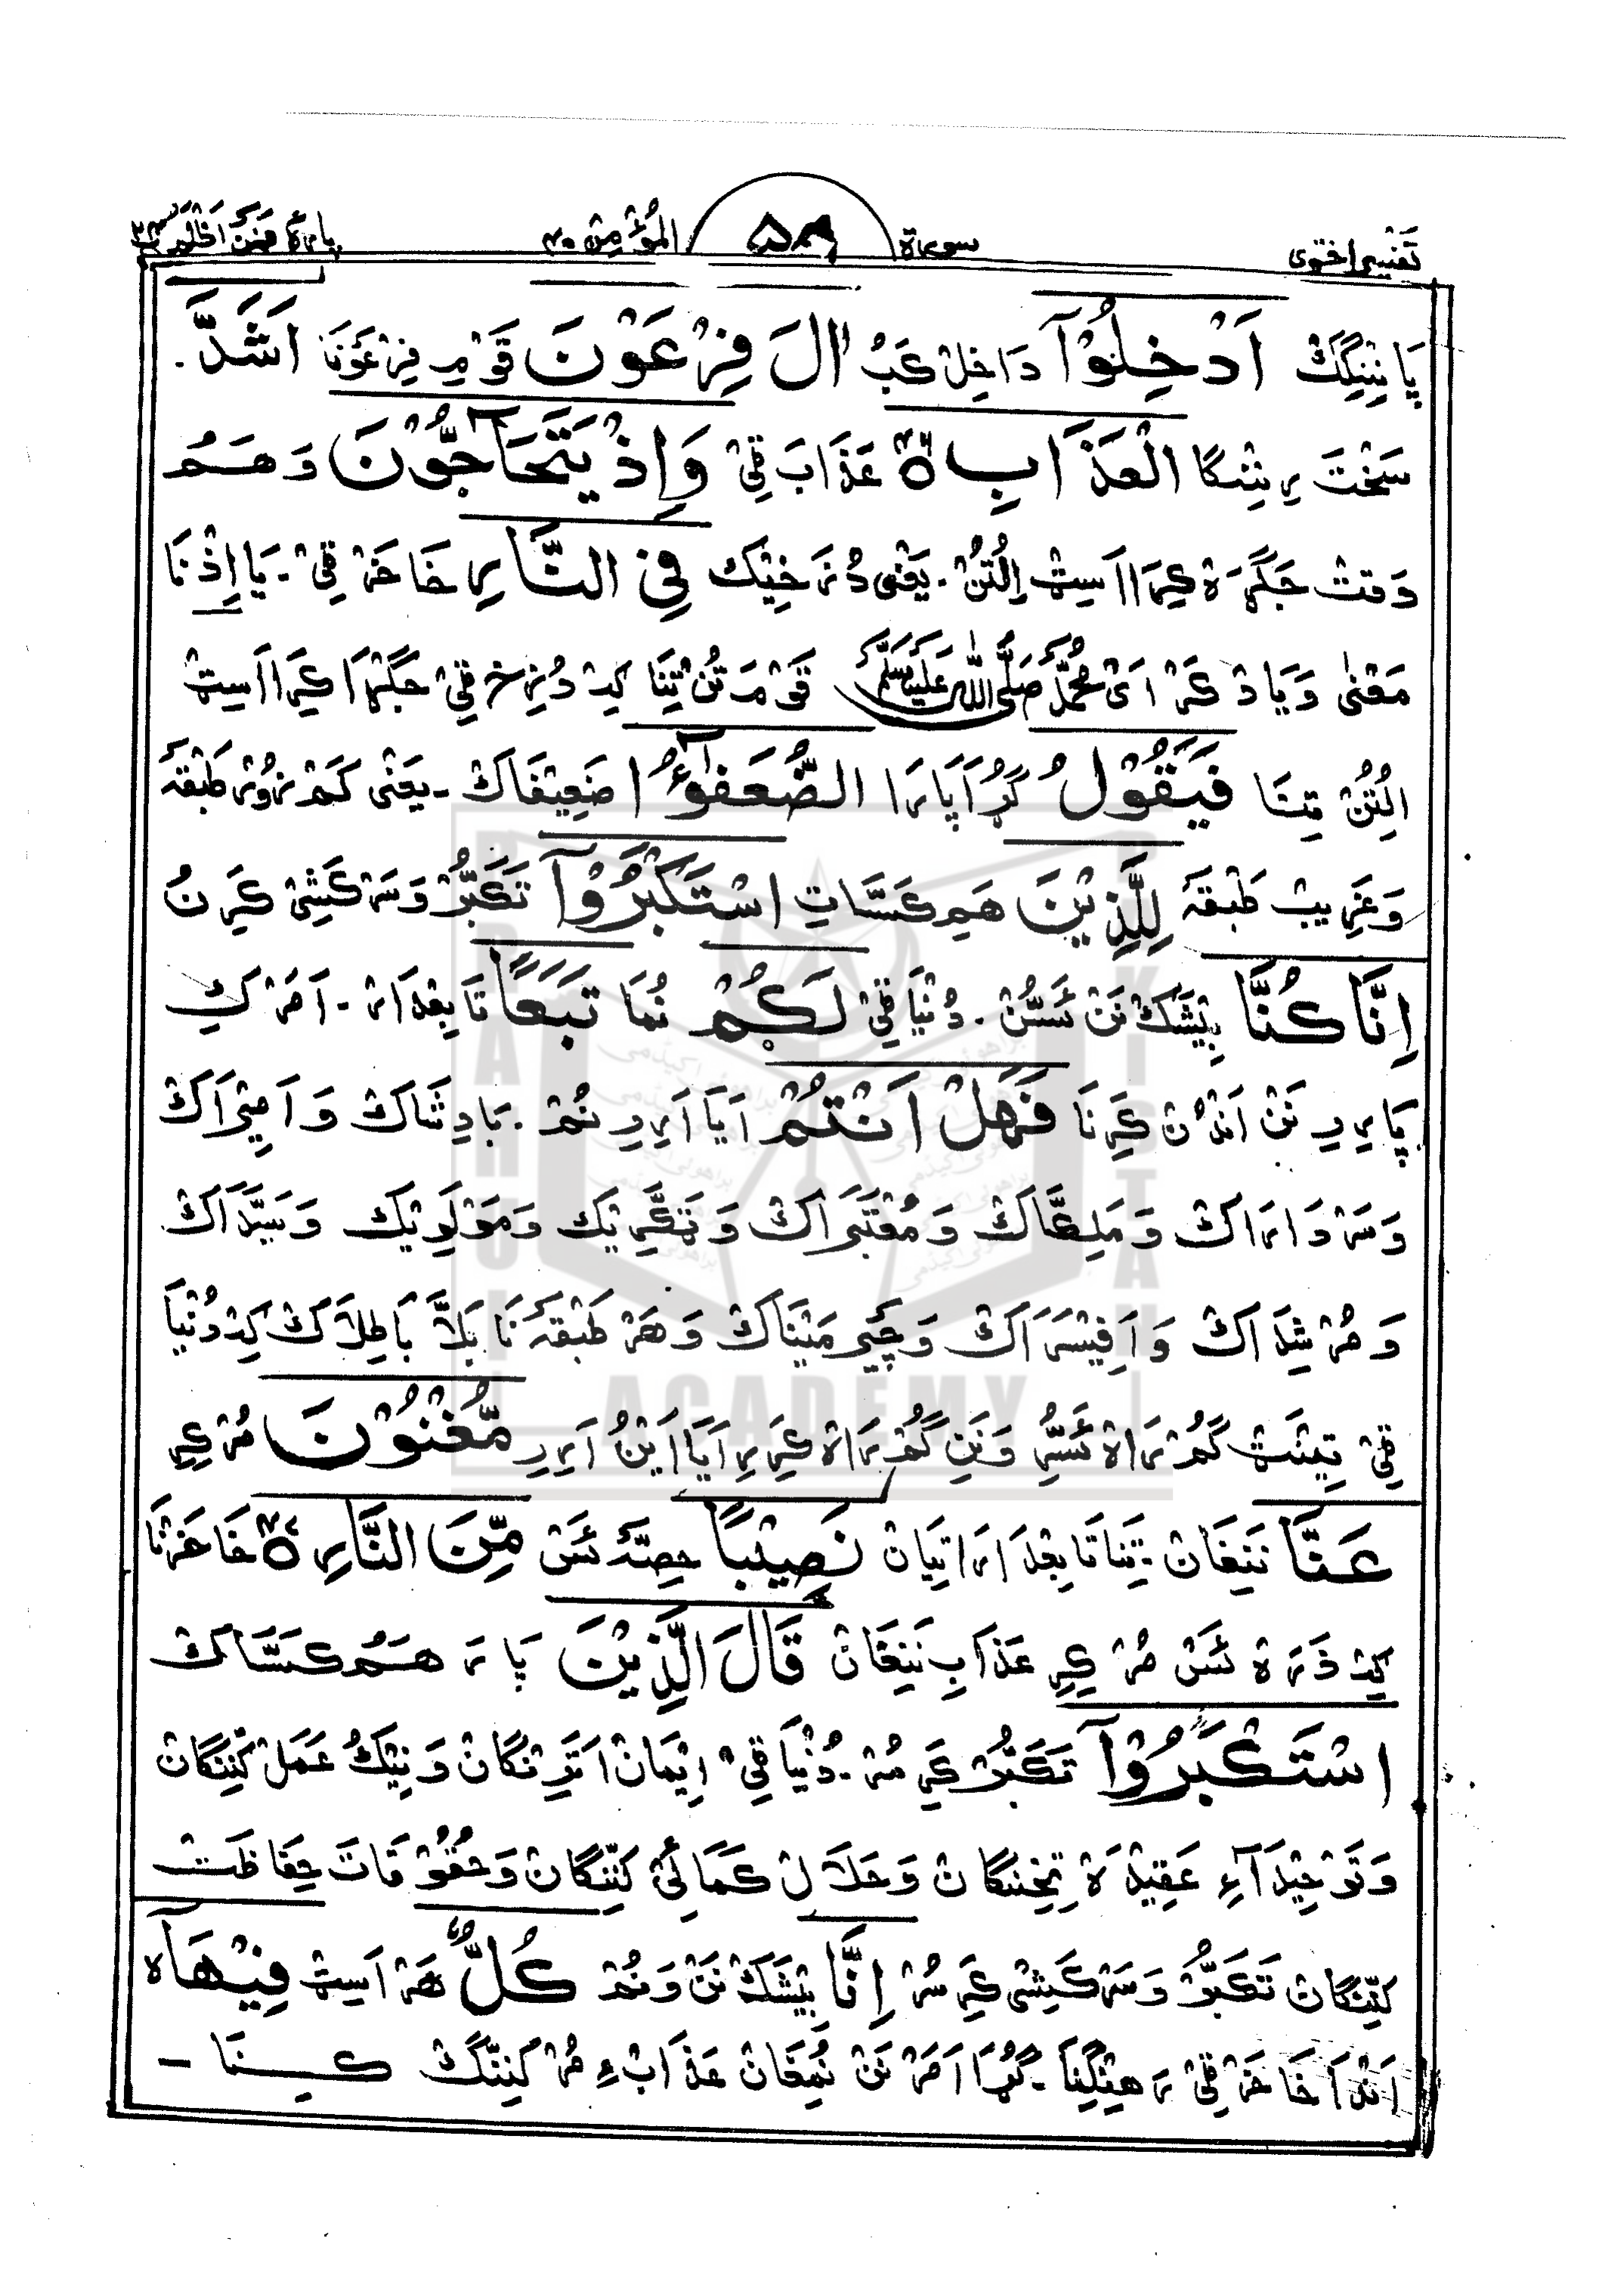 تَفسِیرِ اختری سورة ۵۹ المُؤمِن ۴۰ پارہ فَمَن اَظْلَم ۲۴
پَانِنِگِکْ اَدْخِلُوْٓا دَاخِلْ کَبْ اٰلَ فِرْعَوْنَ قَوْمِ فِرْعَوْنَا اَشَدَّ
سَخْتَ رِنِنْگا الْعَذَابِ ۴۶ عَذَابَ قِيْ وَاِذْ يَتَحَآجُّوْنَ وَ هَمُ
وَقتْ جَگْہَڑہ کِرَا اَسِیْ اِلْتُنْ۔ یَعْنِی دُزَخِیْک فِی النَّارِ خَاخَرْ قِيْ۔ یَا اِذْنَا
مَعْنٰی وَیَادْ کَرْ اَیْ مُحَمَّدْ صَلَّی اللّٰہُ عَلَیْہِ وَسَلَّمَ قَوْمَ تُنْ تِنَا کِہ دُزَخ قِيْ جَگْہَڑَا کِرَا اَسِیْ
اِلْتُنْ تِنَا فَيَقُوْلُ گُڑَا پَارَا الضُّعَفٰٓؤُا ضَعِیْفَاکْ۔ یَعْنِی کَمْ زُوْر طَبْقَہ
وَ غَرِیْب طَبْقَہ لِلَّذِيْنَ هَمِ کَسَّاتِ اسْتَكْبَرُوْٓا تَکَبُّرْ وَ سَرْ کَشِیْ کَرِنُ
اِنَّا كُنَّا بِیْشَکْ نَنْ ئَسُّنْ۔ دُنْیَا قِيْ لَكُمْ نُمَا تَبَعًا تَابِعْدَارْ۔ اَمَرْ کِ
پَارِرِ نَنْ اَنْدُنْ کَرِنَا فَهَلْ اَنْتُمْ اَیَا اَرِرِ نُمْ۔ بَادِشَاکْ وَ اَمِیْرَاکْ
وَ سَرْدَارَاکْ وَ مَلِکَّاکْ وَ مُعْتَبَرَاکْ وَ ٹَکَّرِیْک وَ مَوْلَوِیْک وَ سَیِّدَاکْ
وَ مُرْشِدَاکْ وَ اَفِیْسَرَاکْ وَ چَیْرمَیْنَاکْ وَ هَرْ طَبْقَہ نَا بَلَّا بَاطِلَاکْ کِہ دُنْیَا
قِيْ تِیْنَٹْ گُمْرَاہْ ئَسُّرْ وَ نَنِ گُمْرَاہ کَرِرِ اَیَا اَیْنُ اَرِرِ مُّغْنُوْنَ مُرْ کِرِ
عَنَّا نَنِغَانْ۔ تِنَا تَابِعْدَارَاتِیَانْ نَصِيْبًا حِصَّہ ئَسْ مِّنَ النَّارِ ۴۷ خَاخَرْنَا
کِہ ذَرَہ ئَسْ مُرْ کِرِ عَذَابِ نَنِغَانْ قَالَ الَّذِيْنَ پَارَ هَمُ کَسَّاکْ
اسْتَكْبَرُوْٓا تَکَبُّرْ کَرِمُرْ۔ دُنْیَا قِيْ اِیْمَانْ اَتَرِنْگَانْ وَ نِیْکُ عَمَلْ کَنِنْگَانْ
وَ تَوْحِیْدَآءِ عَقِیْدَہ تِخِنِنْگَانْ وَ حَلَالْ کَمَائِیْ کَنِّنْگَانْ وَ حُقُوْقَاتَ حِفَاظَتْ
کَنِّنْگَانْ تَکَبُّرْ وَ سَرْکَشِیْ کَرِسُرْ اِنَّا بِیْشَکْ نَنْ وَ نُمْ كُلٌّ هَرْ اَسِیْ فِيْهَآ
اَنْدَا خَاخَرْ قِيْ رَهِنْگِنَا۔ گُڑَا اَمَرْ نَنْ نُمِغَانْ عَذَابْءِ مُرْ کَنِنَّگْ کِسِنَا –
BRAHUI ACADEMY PAKISTAN